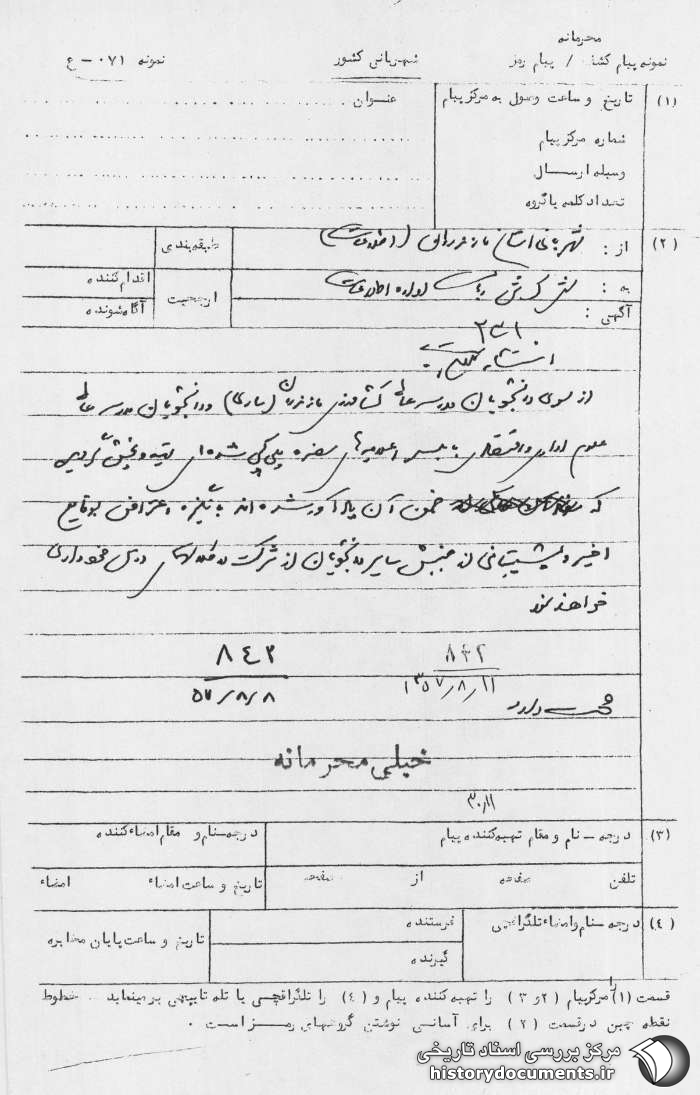 محرمانه
نمونه پیام کشف / پیام رمز
شهربانی کشور
نمونه ۰۷۱ - ع
(۱) تاریخ و ساعت وصول به مرکز پیام
عنوان
شماره مرکز پیام
وسیله ارسال
تعداد کلمه یا گروه
(۲) از : شهربانی استان مازندران (اطلاعات)
طبقه‌بندی
به : ریاست اداره اطلاعات
ارجحیت
اقدام‌کننده
آگاه‌شونده
آگهی :
۲۳۱
از سوی دانشجویان مدرسه عالی کشاورزی مازندران (ساری) و دانشجویان مدرسه عالی
علوم اداری و بابلسر اعلامیه‌ای پلی کپی شده‌ای تهیه و پخش گردیده
که ضمن آن یادآور شده‌اند به انگیزه اعتراض بوقایع
اخیر و پشتیبانی از جنبش سایر دانشجویان از شرکت در کلاسهای درس خودداری
خواهند نمود
۸۴۲
۵۷/۸/۸
۸۴۲
۱۳۵۷/۸/۱۱
خیلی محرمانه
(۳) درجه - نام و مقام تهیه‌کننده پیام
درجه - نام و مقام امضاء کننده
تلفن صفحه از صفحه
تاریخ و ساعت امضاء امضاء
(٤) درجه - نام و امضاء تلگرافچی
فرستنده
گیرنده
تاریخ و ساعت پایان مخابره
قسمت (۱) مرکز پیام (۲ و ۳) را تهیه‌کننده پیام و (٤) را تلگرافچی یا تله تایپچی پر مینماید .. خطوط
نقطه چین در قسمت (۲) برای آسانی نوشتن گروههای رمز است .
مرکز بررسی اسناد تاریخی
historydocuments.ir